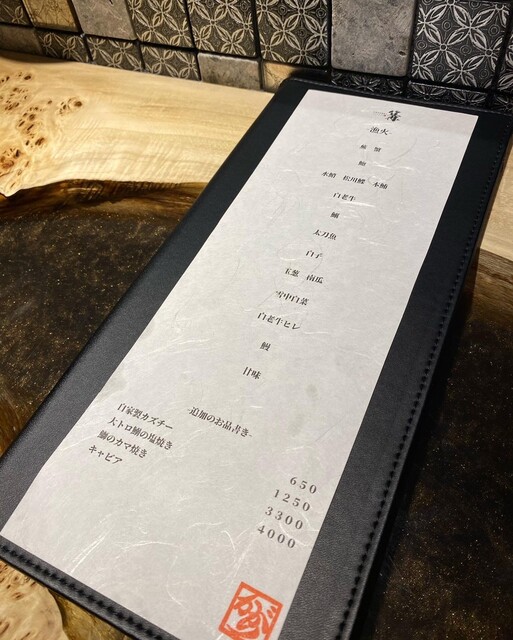 漁火
蟹
本鮪
白老牛
太刀魚
白子
玉葱 南瓜
雪中白菜
白老牛ヒレ
鰻
甘味
-追加のお品書き-
自家製カズチー 650
大トロ鰤の塩焼き 1250
鰤のカマ焼き 3300
キャビア 4000